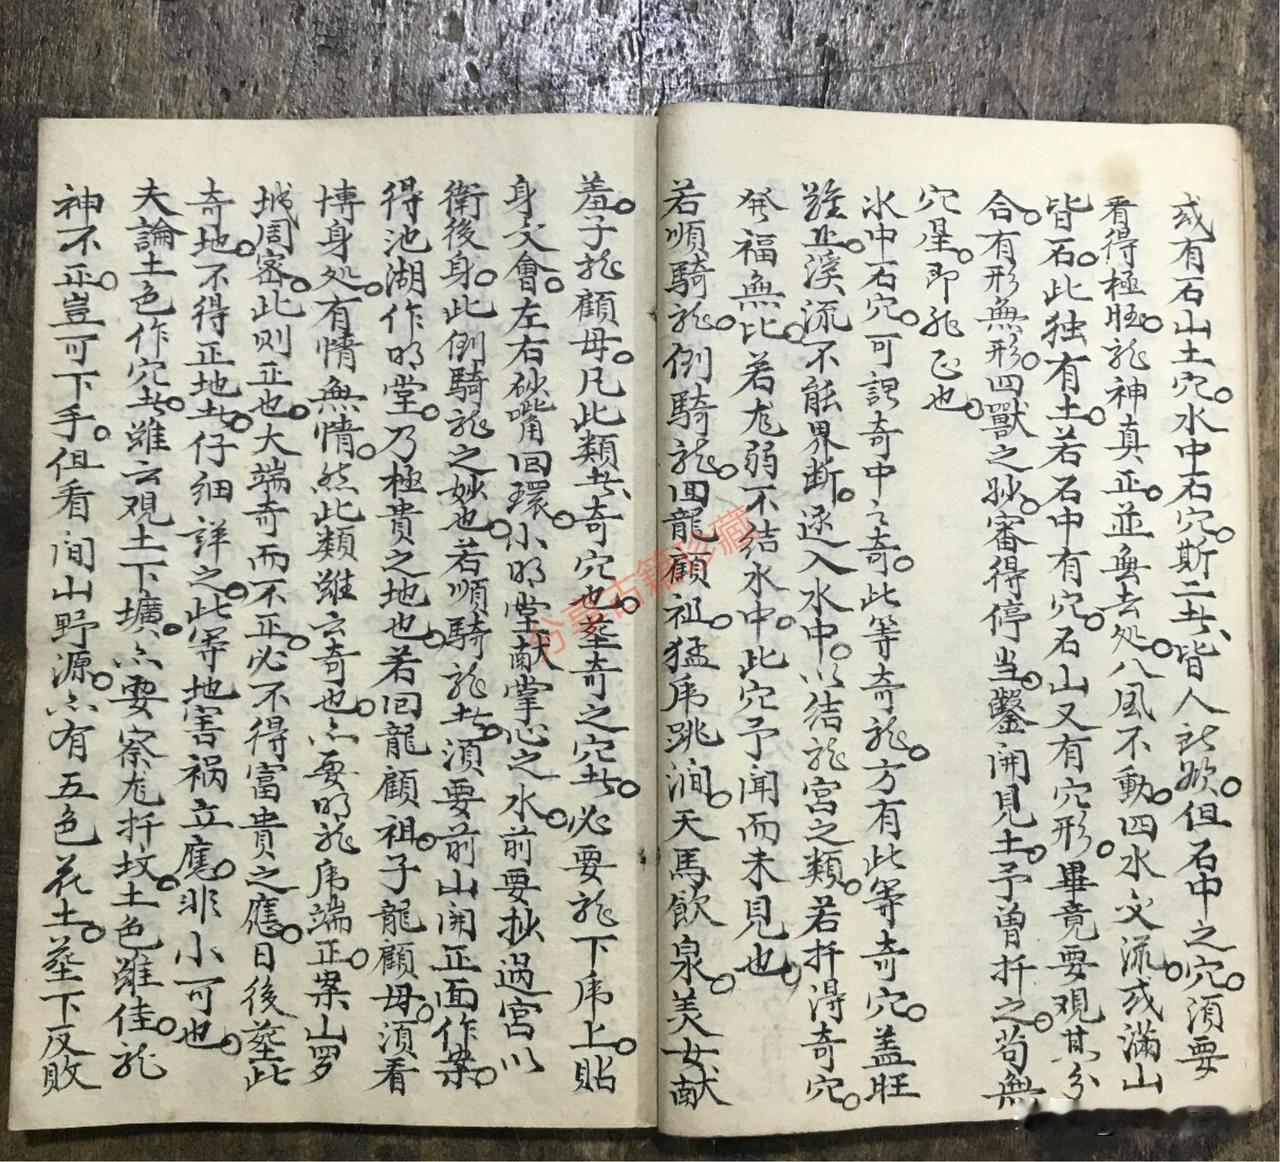 或有石山土穴。水中石穴。斯二者、皆人所欲。但石中之穴。須要
看得極旺。龍神真正。並無去処。八風不動。四水交流。或滿山
皆石。此独有土。若石中有穴。石山又有穴形。畢竟要观其分
合。有形無形。四獸之砂。審得停当。鑿開見土。予曾扦之。苟無
穴星。即龍正也。
水中石穴。可謂奇中之奇。此等奇龍。方有此等奇穴。盖旺
難止。溪流不能界断。逐入水中。以结龍宮之類。若扦得奇穴。
発福無比。若尨弱不结水中。此穴予闻而未見也。
若順騎龍。倒騎龍。回龍顧祖。猛虎跳澗。天馬飲泉。美女献
羞。子龍顧母。凡此類者、奇穴也。葬奇之穴者。必要龍下虎上。貼
身交會。左右砂嘴回環。小明堂献掌心之水。前要抄過宮以
衛後身。此倒騎龍之妙也。若順騎龍者。須要前山開正面作案。
得池湖作明堂。乃極貴之地也。若回龍顧祖。子龍顧母。須看
博身処。有情無情。然此類雖云奇也。亦要明龍虎端正。案山罗
城周密。此则正也。大端奇而不正。必不得富貴之應。日後葬此
奇地。不得正地者。仔细詳之。此等地害祸立應。非小可也。
夫論土色作穴者。雖云观土下壙。亦要察尨扦坟。土色雖佳。龍
神不正。豈可下手。但看间山野源。亦有五色花土。葬下反敗
分享古籍珍藏